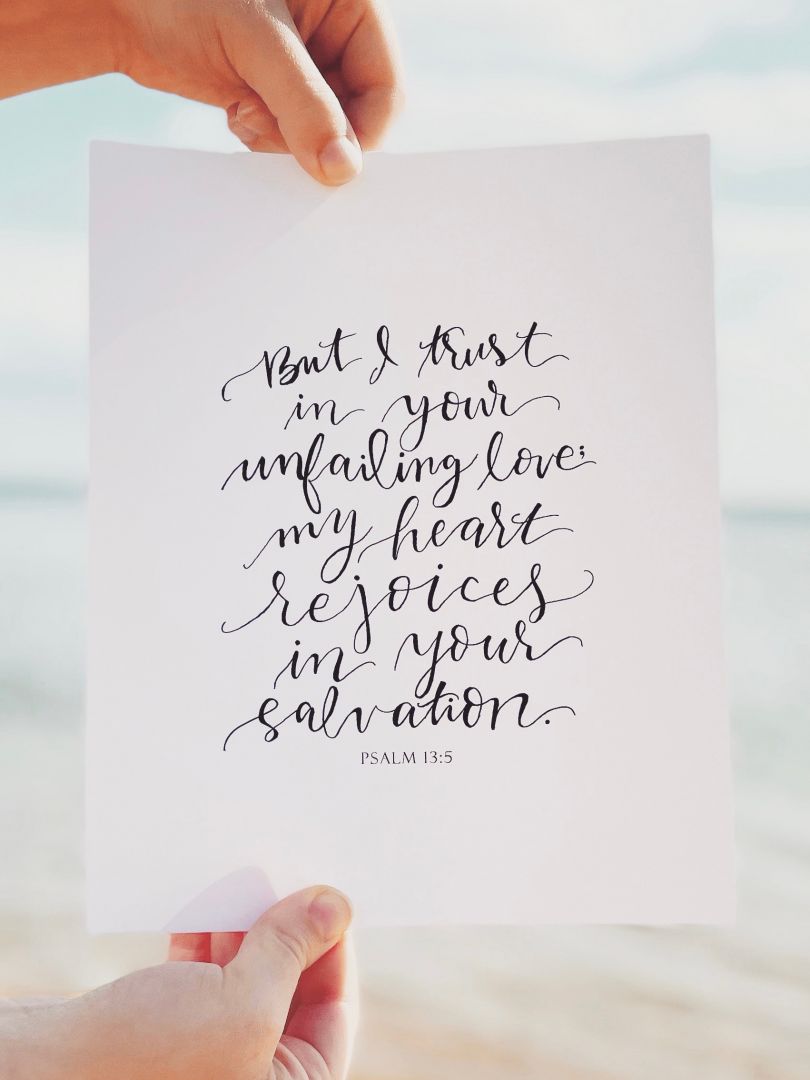 But I trust
in your
unfailing love;
my heart
rejoices
in your
salvation.
PSALM 13:5